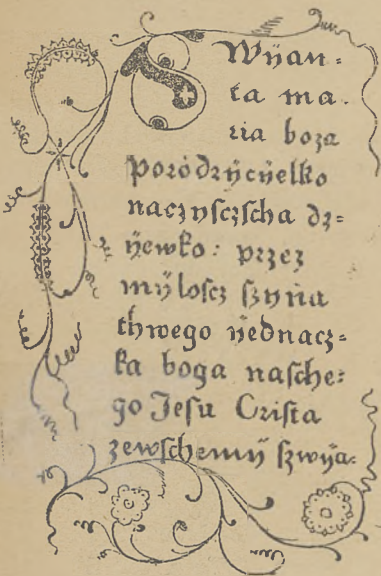 SWÿan-
ta ma-
ria boza
porodzÿcÿelko
naczyſczſcha dz-
ÿewko: przez
mÿloſcz ſzyna
thwego ÿednacz-
ka boga naſche-
go Jeſu Criſta
zewſchemÿ ſzwÿa-